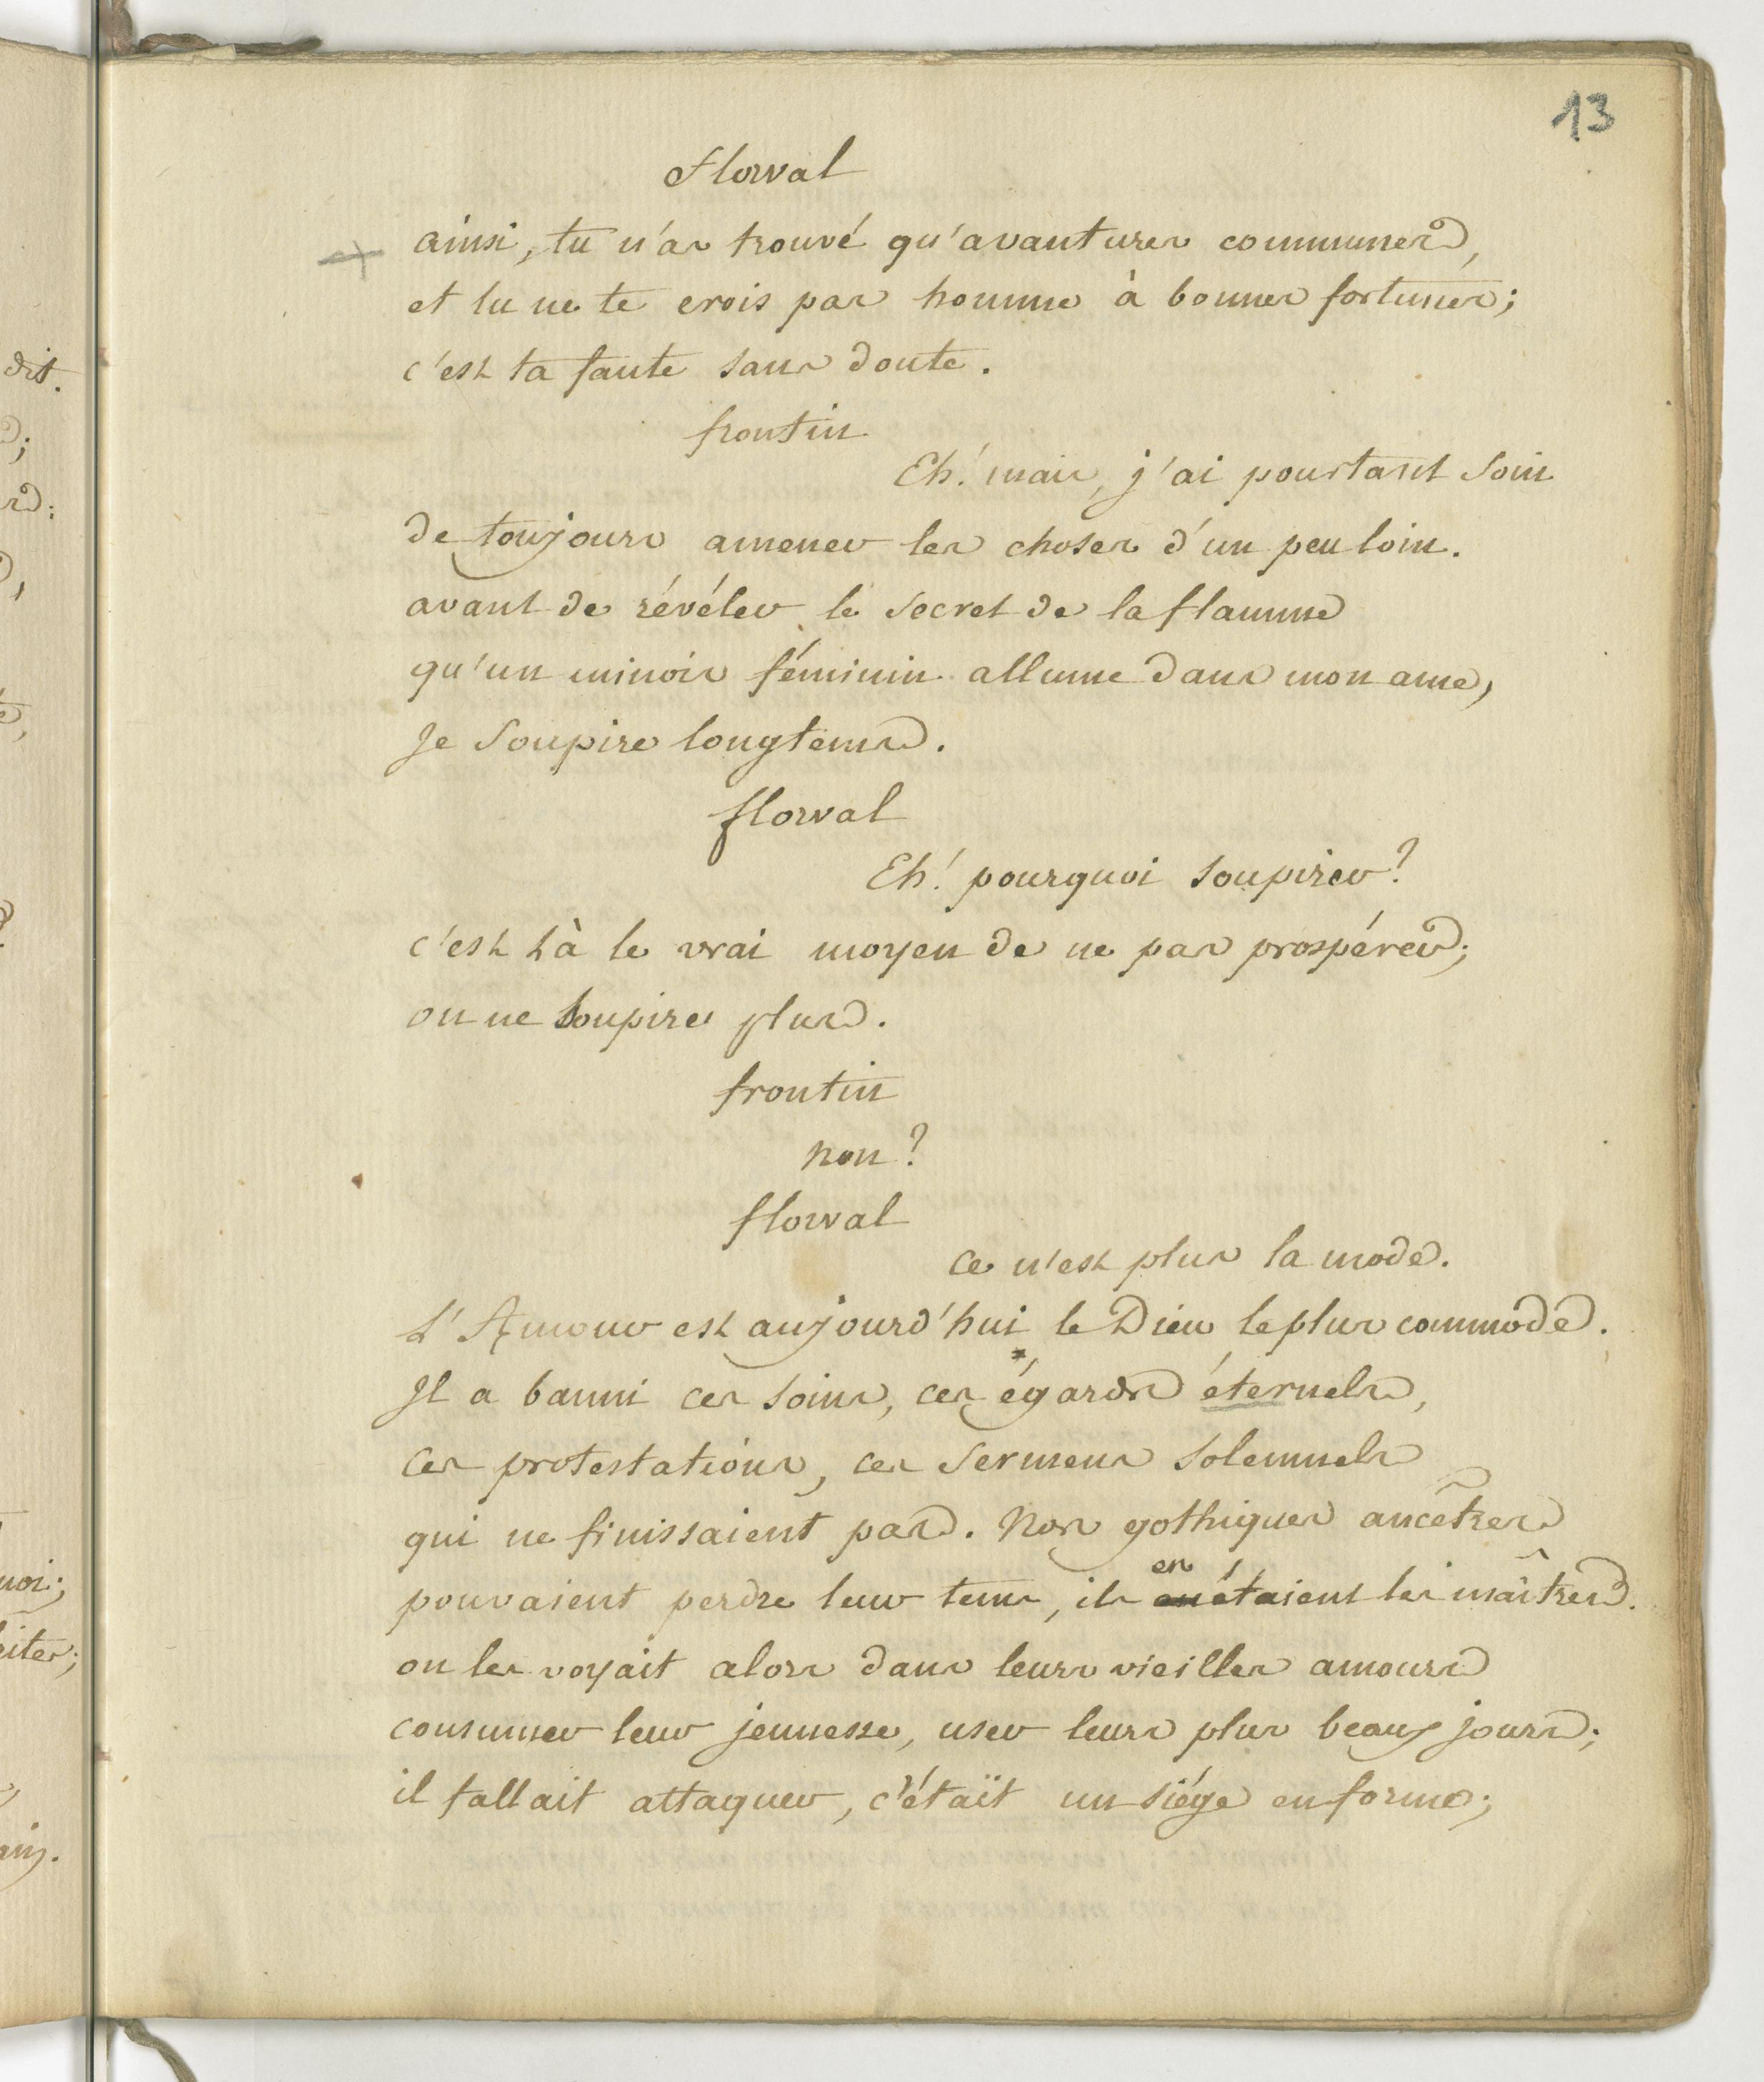 13
Florval
ainsi, tu n'as trouvé qu'avantures communes,
et tu ne te crois pas homme à bonnes fortunes;
c'est ta faute sans doute.
frontin
Eh! mais, j'ai pourtant soin
de toujours amener les choses d'un peu loin.
avant de révéler le secret de la flamme
qu'un minois féminin allume dans mon ame,
je soupire longtems.
florval
Eh! pourquoi soupirer?
c'est là le vrai moyen de ne pas prospérer;
on ne soupire plus.
frontin
non?
florval
ce n'est plus la mode.
L'Amour est aujourd'hui le Dieu le plus commode.
Il a banni ces soins, ces égards éternels,
ces protestations, ces sermens solemnels
qui ne finissaient pas. Nos gothiques ancêtres
pouvaient perdre leur tems, ils en étaient les maîtres.
on les voyait alors dans leurs vieilles amours
consumer leur jeunesse, user leurs plus beaux jours;
il fallait attaquer, c'étaït un siége en forme;
dit.